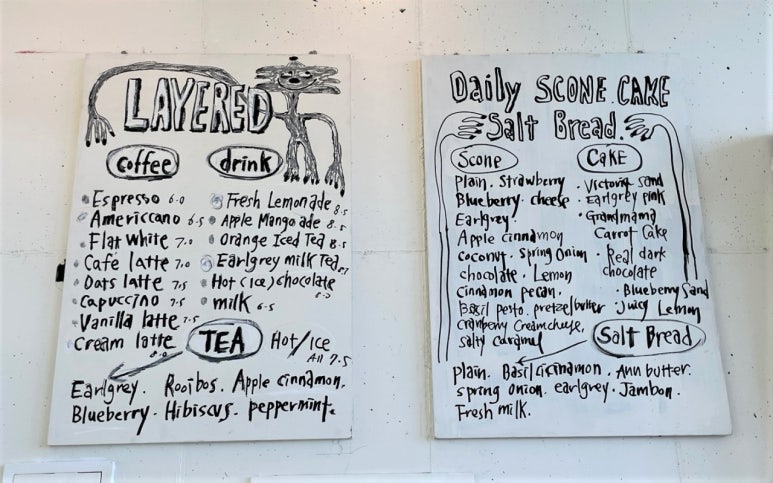 LAYERED
coffee
Espresso 6.0
Americcano 6.5
Flat White 7.0
Café latte 7.0
Oats latte 7.5
Capuccino 7.5
Vanilla latte 7.5
Cream latte 8.0
drink
Fresh Lemonade 8.5
Apple Mango ade 8.5
Orange Iced Tea 8.5
Earlgrey milk Tea
Hot (ice) chocolate
milk 6.5
TEA Hot/Ice
All 7.5
Earlgrey. Rooibos. Apple cinnamon.
Blueberry. Hibiscus. peppermint.
Daily SCONE. CAKE
Salt Bread.
Scone
Plain. Strawberry
Blueberry. cheese
Earlgrey
Apple cinnamon
coconut. spring onion
chocolate. Lemon
Cinnamon pecan.
Basil pesto. pretzel butter
cranberry Creamcheese,
salty caramel
CAKE
· Victoria sand
· Earlgrey pink
· Grandmama
Carrot Cake
· Real dark
chocolate
· Blueberry Sand
· Juicy Lemon
Salt Bread
plain. Basil Ann butter.
spring onion. earlgrey. Jambon.
Fresh milk.